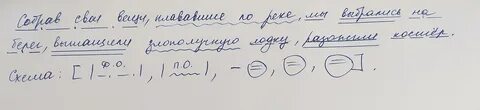 Собрав свои вещи, плававшие по реке, мы выбрались на
берег, вытащили злополучную лодку, разожгли костёр.
Схема: [ | Д.О. | , | П.О. | , – = , = , = ] .